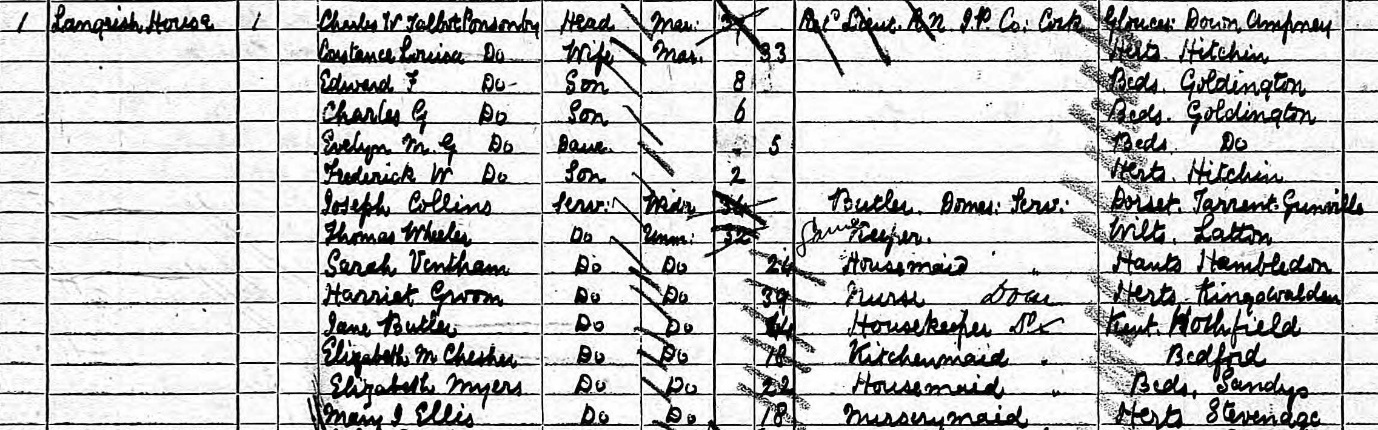 1 Langrish House 1 Charles W Talbot Ponsonby Head Mar: 37 Lieut. R.N. J.P. Co: Cork Glouces: Down Ampney
Constance Louisa Do Wife Mar. 33 Herts. Hitchin
Edward F Do Son 8 Beds. Goldington
Charles G Do Son 6 Beds. Goldington
Evelyn M. G Do Daur. 5 Beds. Do
Frederick W Do Son 2 Herts. Hitchin
Joseph Collins Serv: Widr Butler. Domes: Serv: Dorset. Tarrent Gunville
Thomas Wheeler Do Unm: 32 Keeper. Wilts. Latton
Sarah Ventham Do Do 24 Housemaid " Hants Hambledon
Harriet Groom Do Do 39 Nurse Dom Herts. Kingswalden
Jane Butler Do Do Housekeeper Kent. Hothfield
Elizabeth M Chesher Do Do 18 Kitchenmaid " Bedford
Elizabeth Myers Do Do 22 Housemaid " Beds. Sandys
Mary I Ellis Do Do 18 Nurserymaid Herts Stevenage